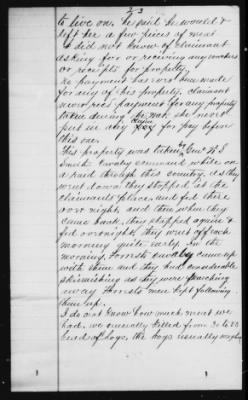 23
to live on. he said he would &
left her a few pieces of meat
I did not know of claimant
asking for or receiving any vouchers
or receipts for property.
No payment has ever been made
for any of his property. claimant
never recd payment for any property
taken during the war, she never
put in any claim for pay before
this one.
This property was taken Genl
Smith Cavalry command while on
a raid through this country. as they
went down they stopped at the
claimants place, and fed there
over night, and then when they
came back, they stopped again &
fed overnight, they went off each
morning quite early. In the
morning, Forrests cavalry came up
with them and they had considerable
skirmishing as they were marching
away Forrests men kept following
them up.
I do not know how much meat we
had, we usually killed from 30 to
head of hogs, the hogs usually